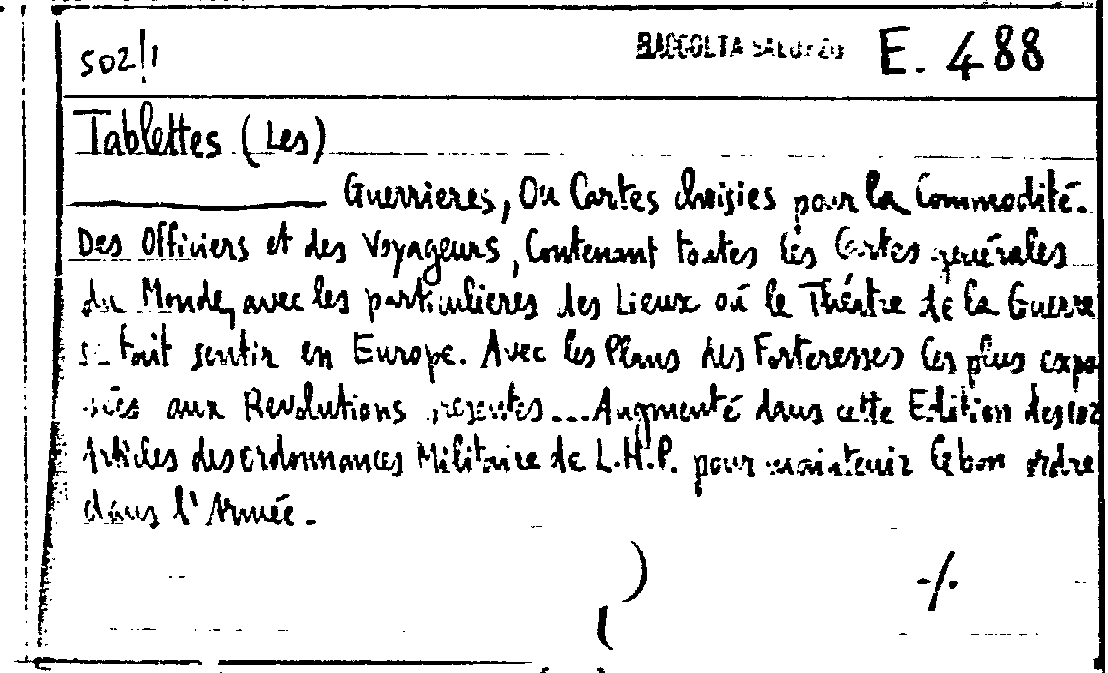 502!1 RACCOLTA SALUZZO E. 488
Tablettes (Les)
Guerrieres, Ou Cartes choisies pour la Commodité.
Des Officiers et des Voyageurs, Contenant toutes les Cartes generales
du Monde, avec les particulieres des Lieux où le Théatre de la Guerre
se fait sentir en Europe. Avec les Plans des Forteresses les plus expo
sées aux Revolutions presentes...Augmenté dans cette Edition des
Articles des ordonnances Militaire de L.H.P. pour maintenir le bon ordre
dans l'Armée.
./.